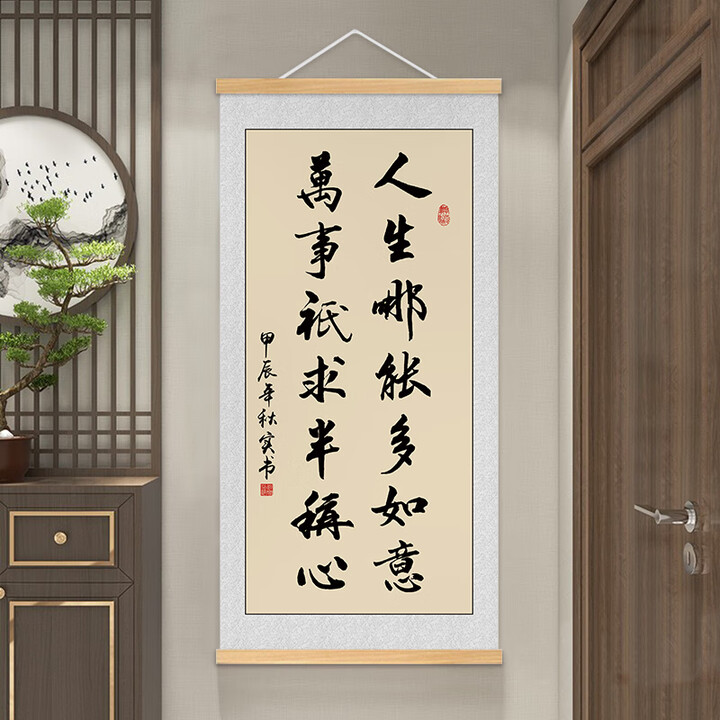 人生哪能多如意
萬事祇求半稱心
甲辰年秋实书